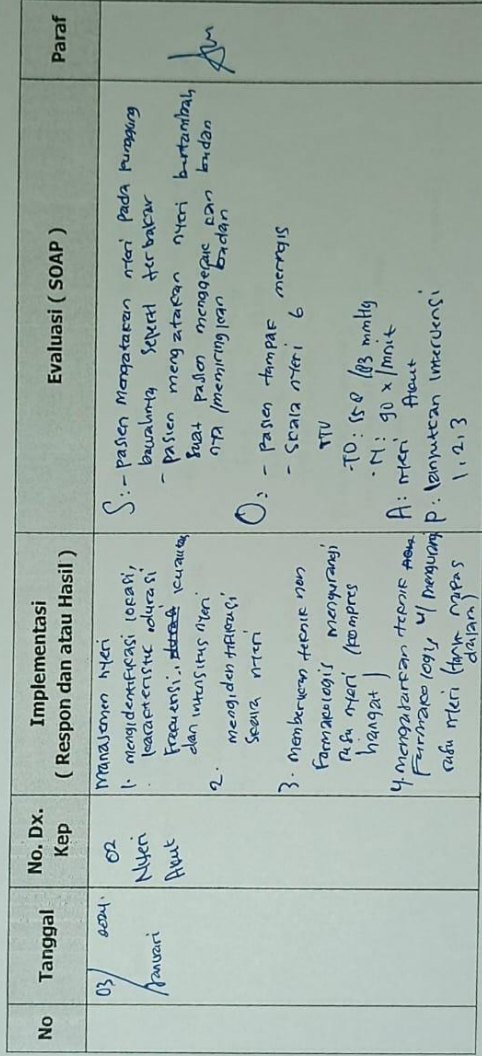 No
Tanggal
No. Dx.
Kep
Implementasi
( Respon dan atau Hasil )
Evaluasi ( SOAP )
Paraf
03/ 2024.
Januari
02
Nyeri
Akut
Manajemen nyeri
1. mengidentifikasi lokasi,
karakteristik, durasi
Frekuensi, kualitas
dan intensitas nyeri
2.
mengidentifikasi
Skala nyeri
3. memberikan teknik non
Farmakologis mengurangi
rasa nyeri (kompres
hangat)
4. mengajarkan teknik
Farmakologis u/ mengurang
rasa nyeri (tarik napas
dalam)
S: - pasien mengatakan nyeri pada punggung
bawahnya seperti terbakar
- pasien mengatakan nyeri bertambah
saat pasien menggerak kan badan
nya /memiringkan badan
O: - pasien tampak meringis
- Skala nyeri 6
TTV
- TD: /83 mmHg
- N: 90 x/mnit
A: nyeri Akut
P: lanjutkan intervensi
1, 2, 3